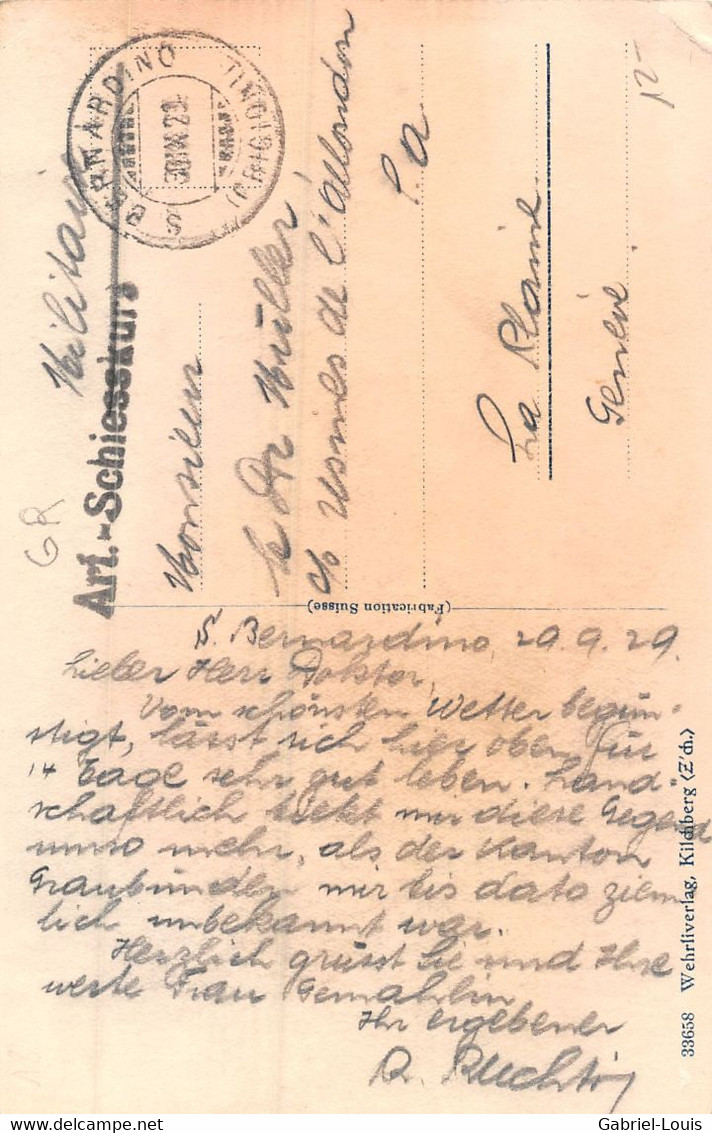 Militaire
Art.-Schiesskurs
S. BERNARDINO (GRIGIONI)
30.IX.29.
GR
12-
Monsieur
le Dr Müller
c/o Usines de l'Allondon
S.A
La Plaine
Genève
(Fabrication Suisse)
S. Bernardino, 29.9.29.
Lieber Herr Doktor,
Vom schönsten Wetter begün-
stigt, lässt sich hier oben für
14 Tage sehr gut leben. Land-
schaftlich lockt mir diese Gegend
umso mehr, als der Kanton
Graubünden mir bis dato ziem
lich unbekannt war.
Herzlich grüsst Sie und Ihre
werte Frau Gemahlin
Ihr ergebener
33658 Wehrliverlag, Kilchberg (Z'ch.)
Gabriel-Louis
delcampe.net